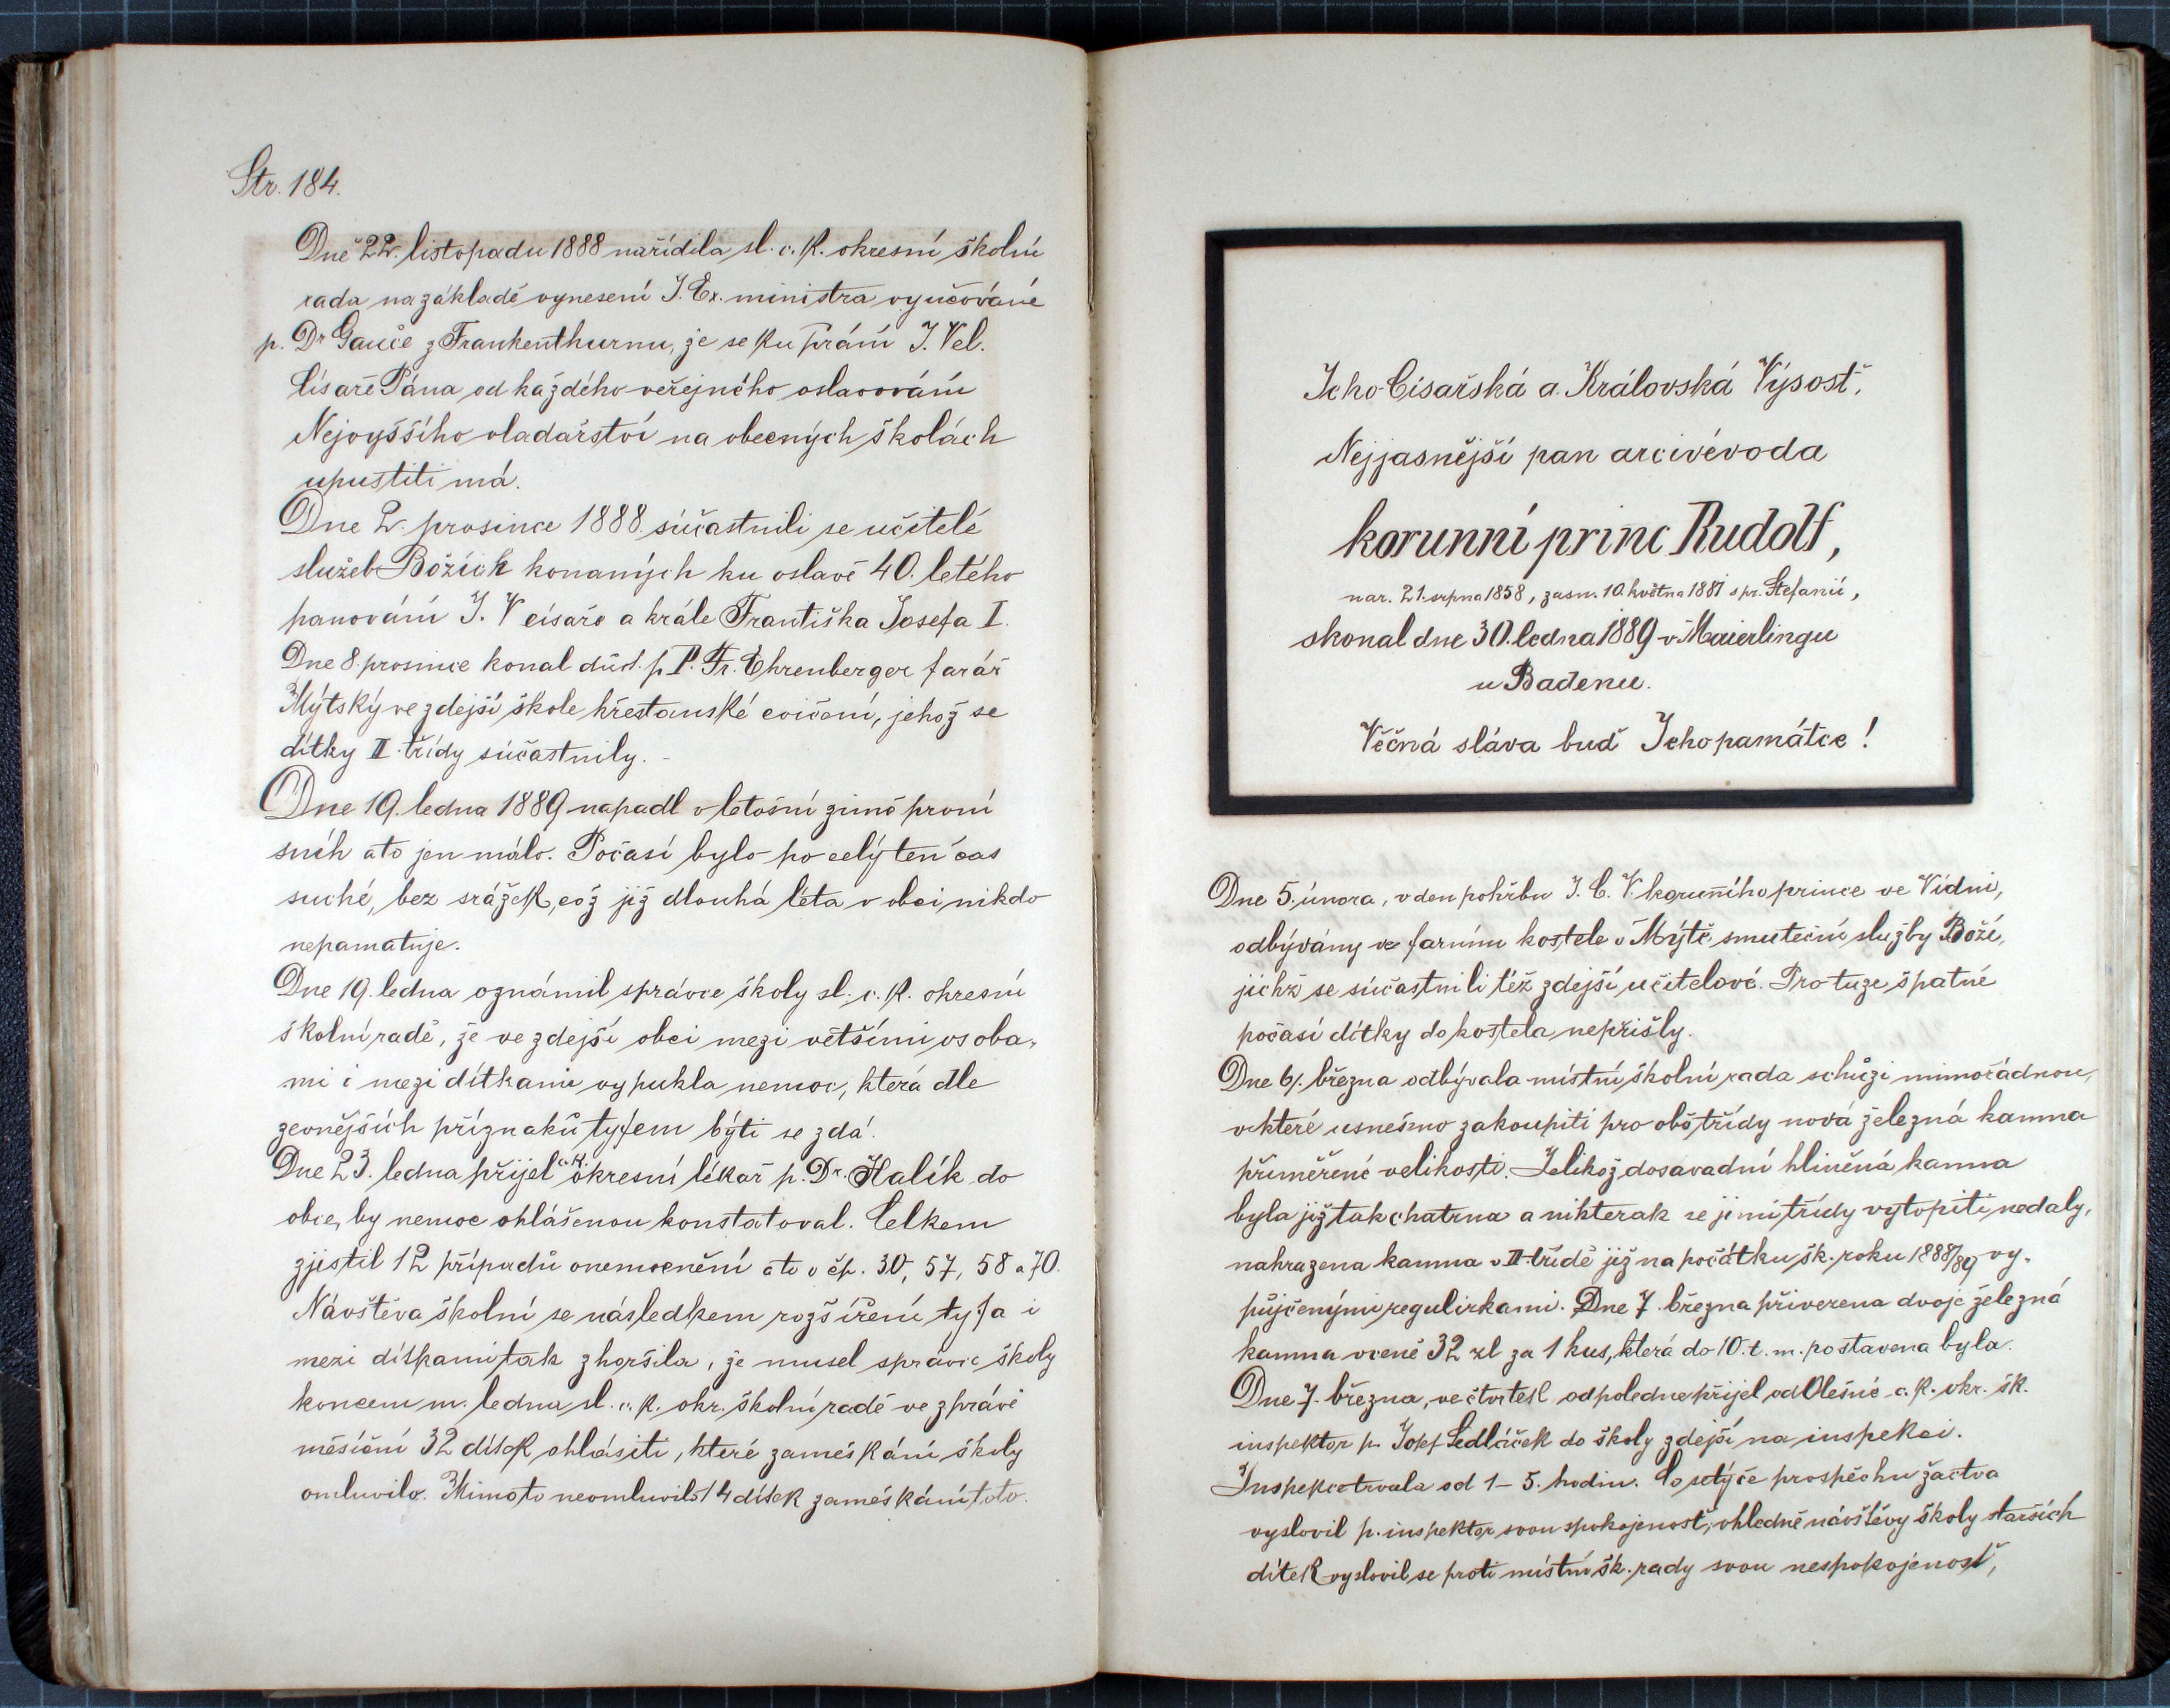 Str. 184.
Dne 22. listopadu 1888 nařídila sl. c. k. okresní školní
rada na základě vynesení J. Ex. ministra vyučování
p. Dr Gauče z Frankenthurnu, že se ku přání J. Vel.
Císaře Pána od každého veřejného oslavování
Nejvyššího vladařství na obecných školách
upustiti má.
Dne 2. prosince 1888 súčastnili se učitelé
služeb Božích konaných ku oslavě 40. letého
panování J. V císaře a krále Františka Josefa I.
Dne 8. prosince konal důst. p P. Fr. Ehrenberger farář
Mýtský ve zdejší škole křestanské cvičení, jehož se
dítky II. třídy súčastnily. -
Dne 19. ledna 1889 napadl v letošní zimě první
sníh a to jen málo. Počasí bylo po celý ten čas
suché, bez srážek, což již dlouhá léta v obci nikdo
nepamatuje.
Dne 19. ledna oznámil správce školy sl. c. k. okresní
školní radě, že ve zdejší obci mezi většími osoba-
mi i mezi dítkami vypukla nemoc, která dle
zevnějších příznaků tyfem býti se zdá.
Dne 23. ledna přijel c. k. okresní lékař p. Dr. Halík do
obce, by nemoc ohlášenou konstatoval. Celkem
zjistil 12 případů onemocnění a to v čp. 30, 57, 58 a 70.
Návštěva školní se následkem rozšíření tyfa i
mezi dítkami tak zhoršila, že musel správce školy
koncem m. ledna sl. c. k. okr. školní radě ve zprávě
měsíční 32 dítek ohlásiti, které zameškání školy
omluvilo. Mimoto neomluvilo 14 dítek zameškání toto.
Jeho Císařská a Královská Výsosť,
Nejjasnější pan arcivévoda
korunní princ Rudolf,
nar. 21. srpna 1858, zasn. 10. května 1881 s pr. Štefanií,
skonal dne 30. ledna 1889 v Maierlingu
u Badenu.
Věčná sláva buď Jeho památce!
Dne 5. února, v den pohřbu J. C. V. korunního prince ve Vídni,
odbývány ve farním kostele v Mýtě smuteční služby Boží,
jichž se súčastnili též zdejší učitelové. Pro tuze špatné
počasí dítky do kostela nepřišly.
Dne 6. března odbývala místní školní rada schůzi mimořádnou,
v které usnešeno zakoupiti pro obě třídy nová železná kamna
přiměřené velikosti. Jelikož dosavadní hliněná kamna
byla již tak chatrna a nikterak se jimi třídy vytopiti nedaly,
nahrazena kamna v II. třídě již na počátku šk. roku 1888/89 vy-
půjčenými regulirkami. Dne 7. března přivezena dvoje železná
kamna v ceně 32 zl za 1 kus, která do 10. t. m. postavena byla.
Dne 7. března, ve čtvrtek odpoledne přijel od Olešné c. k. okr. šk.
inspektor p. Josef Sedláček do školy zdejší na inspekci.
Inspekce trvala od 1–5. hodin. Co se týče prospěchu žactva
vyslovil p. inspektor svou spokojenosť, ohledně návštěvy školy starších
dítek vyslovil se proti místní šk. rady svou nespokojenosť,